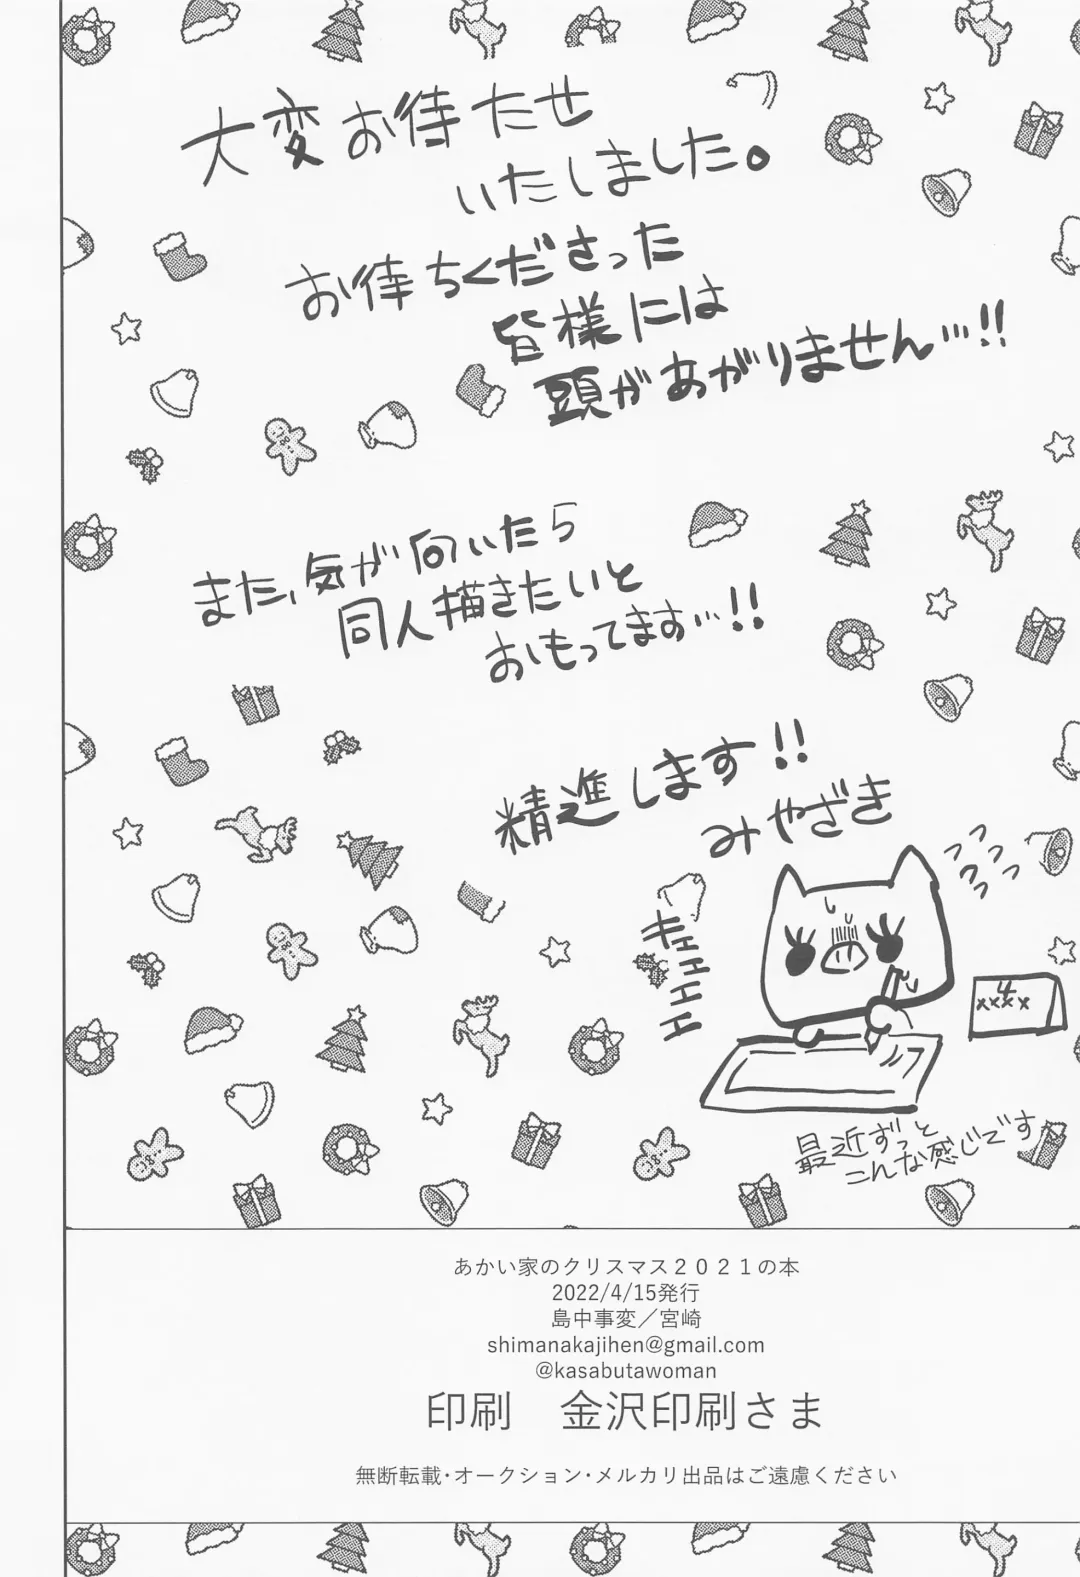 大変お待たせ
いたしました。
お待ちくださった
皆様には
頭があがりません…!!
また、気が向いたら
同人描きたいと
おもってます…!!
精進します!!
みやざき
キェェェェェ
4
xxxx
最近ずっと
こんな感じです
あかい家のクリスマス2021の本
2022/4/15発行
島中事変／宮崎
shimanakajihen@gmail.com
@kasabutawoman
印刷　金沢印刷さま
無断転載・オークション・メルカリ出品はご遠慮ください